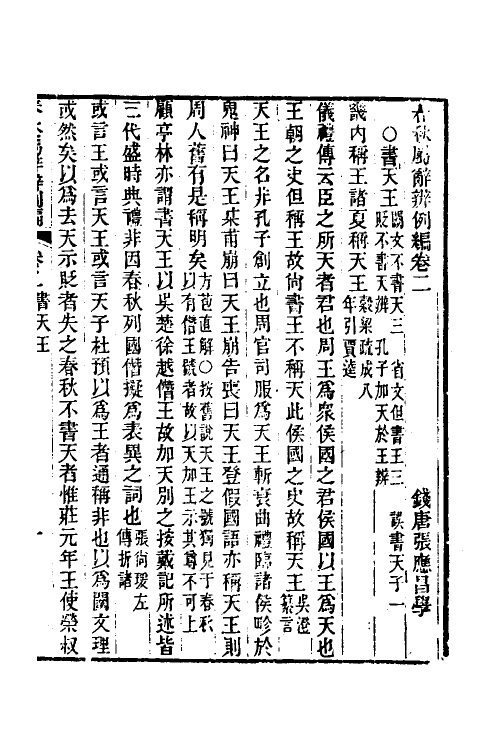 春秋屬辭辨例編卷二
錢唐張應昌學
〇書天王 闕文不書天三 省文但書王三 誤書天子一
貶不書天辨 孔子加天於王辨
畿內稱王諸夏稱天王 穀梁疏成八年引賈逵
儀禮傳云臣之所天者君也周王為眾侯國之君侯國以王為天也
王朝之史但稱王故尚書王不稱天此侯國之史故稱天王 吳澄纂言
天王之名非孔子創立也周官司服為天王斬衰曲禮臨諸侯畛於
鬼神曰天王某甫崩曰天王崩告喪曰天王登假國語亦稱天王則
周人舊有是稱明矣 方苞直解〇按舊說天王之號獨見于春秋以有僭王號者故以天加王示其尊不可上
顧亭林亦謂書天王以吳楚徐越僭王故加天別之按戴記所述皆
三代盛時典禮非因春秋列國僭擬為表異之詞也 張尚瑗左傳折諸
或言王或言天王或言天子杜預以為王者通稱非也以為闕文理
或然矣以為去天示貶者失之春秋不書天者惟莊元年王使榮叔
卷二 書天王
一